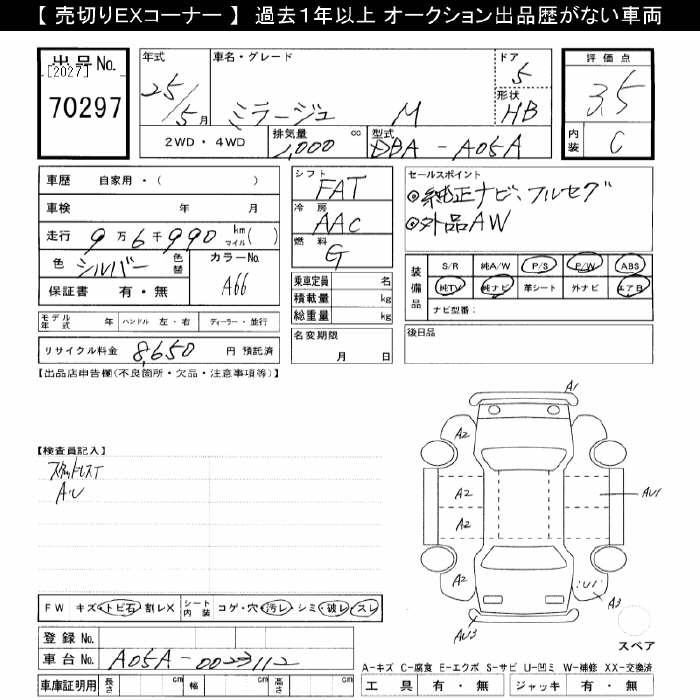 【 売切りEXコーナー 】 過去１年以上 オークション出品歴がない車両
出品No.
[2027]
70297
年式
25/5月
車名・グレード
ミラージュ M
ドア
5
形状
HB
評価点
3.5
内装
C
2WD・4WD
排気量
1,000
cc
型式
DBA-A05A
車歴 自家用・( )
車検 年 月
走行 9万6千990 km マイル( )
色 シルバー 色替
カラーNo.
A66
保証書 有・無
シフト
FAT
冷房
AAC
燃料
G
乗車定員 名
積載量 kg
総重量 kg
セールスポイント
◎純正ナビ、フルセグ
◎外品AW
装備品
S/R 純A/W P/S P/W ABS
純TV 純ナビ 革シート 外ナビ エアB
ナビ型番：
モデル年式 年 ハンドル 左・右 ディーラー・並行
リサイクル料金 8,650 円 預託済
名変期限
月 日
後日品
【出品店申告欄(不良箇所・欠品・注意事項等)】
【検査員記入】
A・U
A1
A2
A2
A2
A2
AU1
U1
A3
AU3
スペア
FW キズ・トビ石・割レX
シート内装
コゲ・穴・汚レ・シミ・破レ・スレ
登録No.
車台No. A05A-0023112
車庫証明用 長さ cm 幅 cm 高さ cm
A-キズ C-腐食 E-エクボ S-サビ U-凹ミ W-補修 XX-交換済
工具 有・無 ジャッキ 有・無